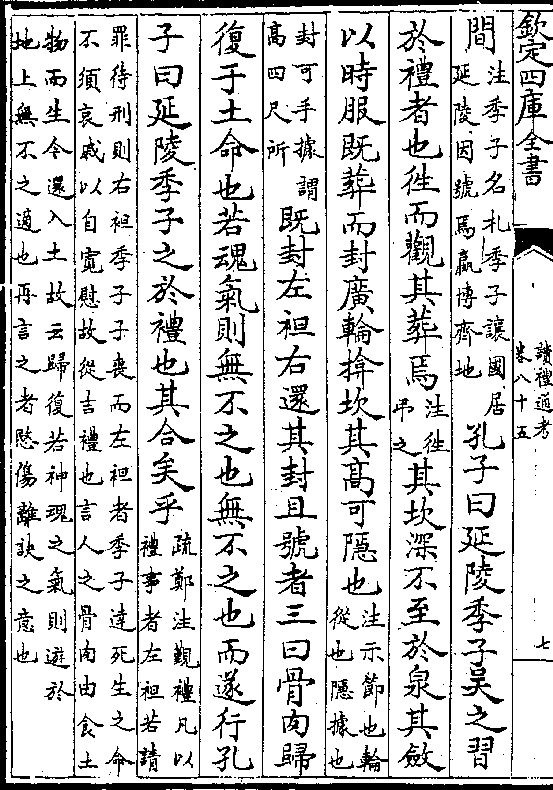 欽定四庫全書
讀禮通考
卷八十五
七
間注季子名札季子讓國居延陵因號焉嬴博齊地孔子曰延陵季子吳之習
於禮者也徃而觀其葬焉注徃弔之其坎深不至於泉其斂
以時服既葬而封廣輪揜坎其髙可隱也注示節也輪從也隱據也
封可手據謂髙四尺所既封左袒右還其封且號者三曰骨肉歸
復于土命也若魂氣則無不之也無不之也而遂行孔
子曰延陵季子之於禮也其合矣乎疏鄭注覲禮凡以禮事者左袒若請
罪待刑則右袒季子子喪而左袒者季子達死生之命
不須哀戚以自寛慰故從吉禮也言人之骨肉由食土
物而生今還入土故云歸復若神魂之氣則遊於
地上無不之適也再言之者愍傷離訣之意也